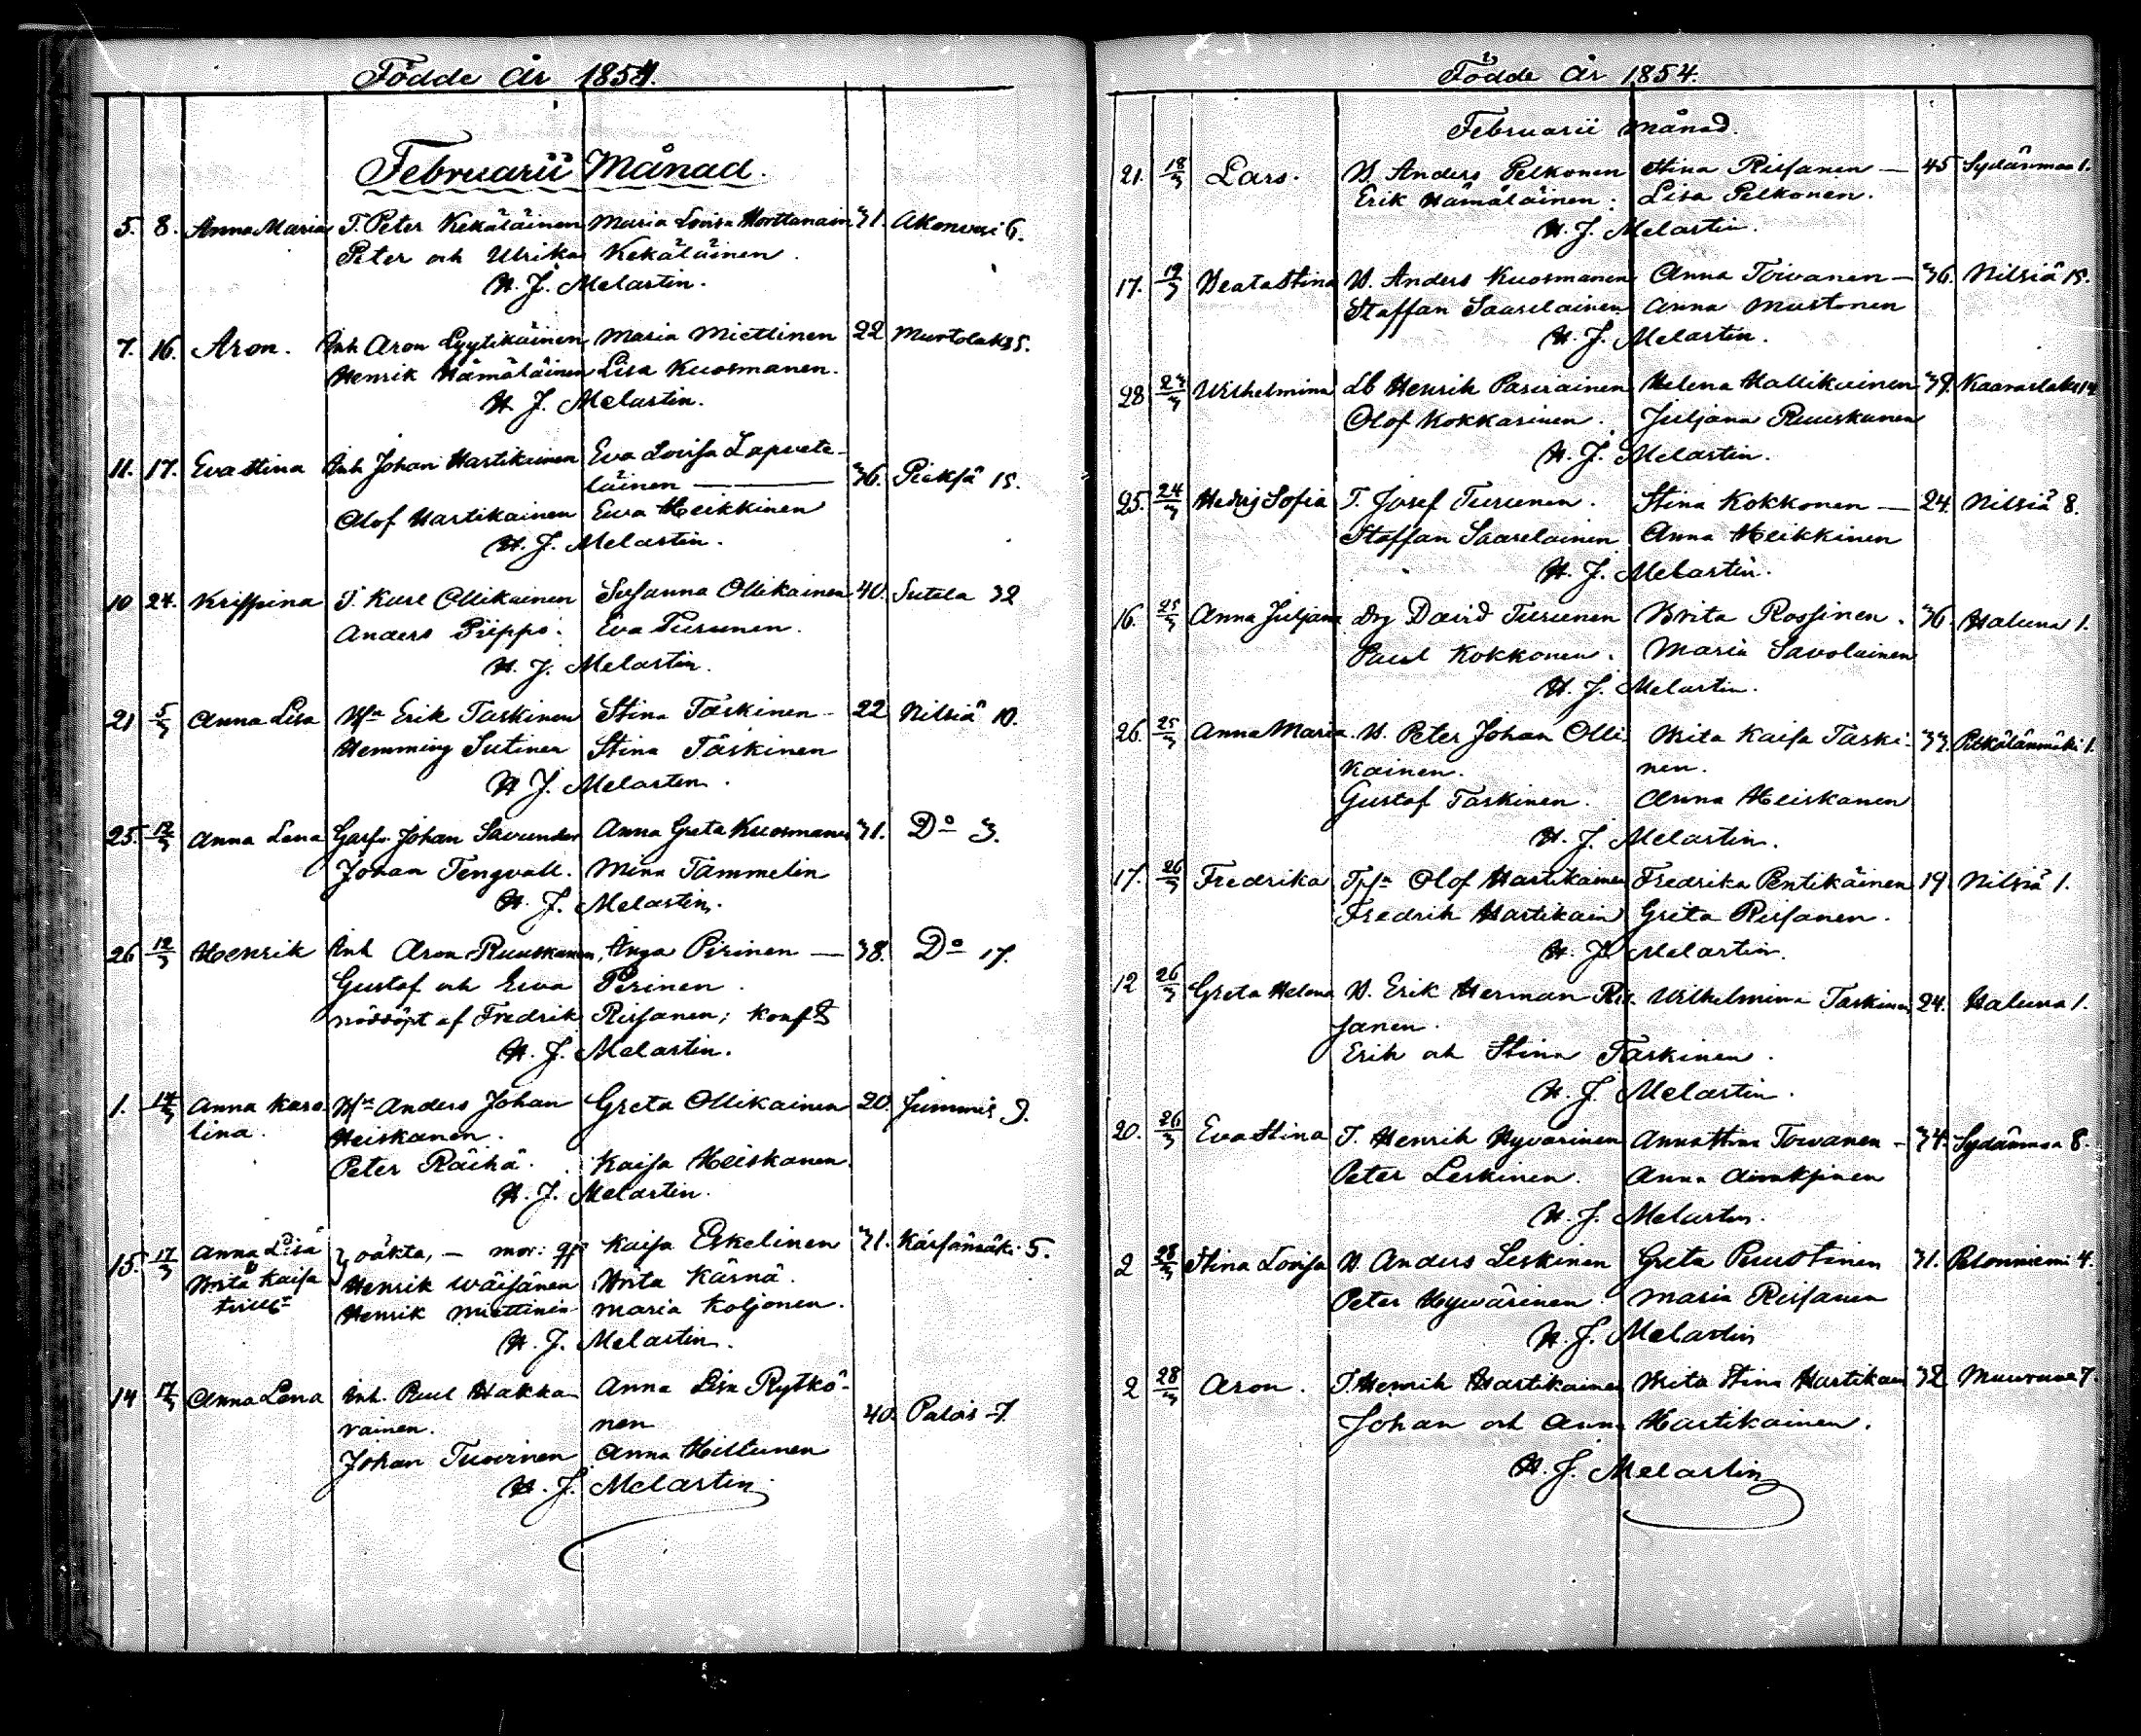 Födde år 1854.
Februarii Månad.
5. 8. Anna Maria T. Peter Kekäläinen Maria Lovisa Horttanain 31. Akonvesi 6.
Peter och Ulrika Kekäläinen.
H. J. Melartin.
7. 16. Aron. Inh Aron Lyytikäinen Maria Miettinen 22 Murtolaks 5.
Henrik Hämäläinen Lisa Kuosmanen.
H. J. Melartin.
11. 17. Eva Stina Inh Johan Hartikainen Eva Lovisa Lapvete-
läinen — 36. Pieksä 15.
Olof Hartikainen Ewa Heikkinen
H. J. Melartin.
10 24. Krispina T. Karl Ollikainen Susanna Ollikainen 40. Sutela 32
Anders Piippo. Eva Turunen.
H. J. Melartin.
21 5/3 Anna Lisa Bsn Erik Taskinen Stina Taskinen - 22 Nilsiä 10.
Hemming Sutinen Stina Taskinen
H. J. Melartin.
25. 12/3 Anna Lena Garfv. Johan Savander Anna Greta Kuosmanen 31. Do 3.
Johan Tengvall. Mina Tammelin
H. J. Melartin.
26 12/3 Henrik Inh Aron Ruuskanen, Inga Pirinen — 38. Do 17.
Gustaf och Ewa Pirinen.
nöddöpt af Fredrik Rissanen; konf
H. J. Melartin.
1. 14/3 Anna Karo- Bsn Anders Johan Greta Ollikainen 20. Jummis 9.
lina. Heiskanen.
Peter Räihä. Kaisa Heiskanen.
H. J. Melartin.
15. 17/3 Anna Lisa oäkta, — mor: Kaisa Eskelinen 31. Kärsämäki 5.
Brita Kaisa Henrik Wäisänen Brita Kärnä.
Henrik Miettinen Maria Koljonen.
H. J. Melartin.
14 17/3 Anna Lena Inh. Paul Hakka- Anna Lisa Rytkö-
rainen. nen 40. Palois 7.
Johan Tuovinen Anna Hiltunen
H. J. Melartin
Födde år 1854.
Februarii månad.
21. 18/3 Lars. B. Anders Pelkonen Stina Rissanen — 45 Sydänmaa 1.
Erik Hämäläinen. Lisa Pelkonen.
H. J. Melartin.
17. 19/3 Beata Stina B. Anders Kuosmanen Anna Toivanen — 36. Nilsiä 15.
Staffan Saarelainen Anna Mustonen
H. J. Melartin.
28 Wilhelmina Lb Henrik Pasiainen Helena Hallikainen 39. Kaaraslaks 14
Olof Kokkarinen. Juljana Ruuskanen
H. J. Melartin.
25. 24/3 Hedvig Sofia T. Josef Turunen. Stina Kokkonen — 24. Nilsiä 8.
Staffan Saarelainen Anna Heikkinen
H. J. Melartin.
16. 25/3 Anna Juljana Drg David Turunen Brita Rossinen. 36. Haluna 1.
Paul Kokkonen. Maria Savolainen
H. J. Melartin.
26. 25/3 Anna Maria. B. Peter Johan Olli- Brita Kaisa Taski- 33. Pelkälänmäki 1.
kainen. nen.
Gustaf Taskinen. Anna Heiskanen
H. J. Melartin.
17. 26/3 Fredrika Tpsn Olof Hartikainen Fredrika Pentikäinen 19 Nilsiä 1.
Fredrik Hartikain Greta Rissanen.
H. J. Melartin.
12 26/3 Greta Helena B. Erik Herman Ris- Wilhelmina Taskinen 24. Haluna 1.
sanen.
Erik och Stina Taskinen.
H. J. Melartin.
20. 26/3 Eva Stina T. Henrik Hyvärinen Anna Stina Toivanen - 34. Sydänmaa 8.
Peter Leskinen. Anna
H. J. Melartin.
2 28/3 Stina Lovisa B. Anders Leskinen Greta Puustinen 31. Pelonniemi 4.
Peter Hyvärinen. Maria Rissanen
H. J. Melartin
2 28/3 Aron. T. Henrik Hartikainen Brita Stina Hartikain 32 Muuruvesi 7.
Johan och Anna Hartikainen.
H. J. Melartin